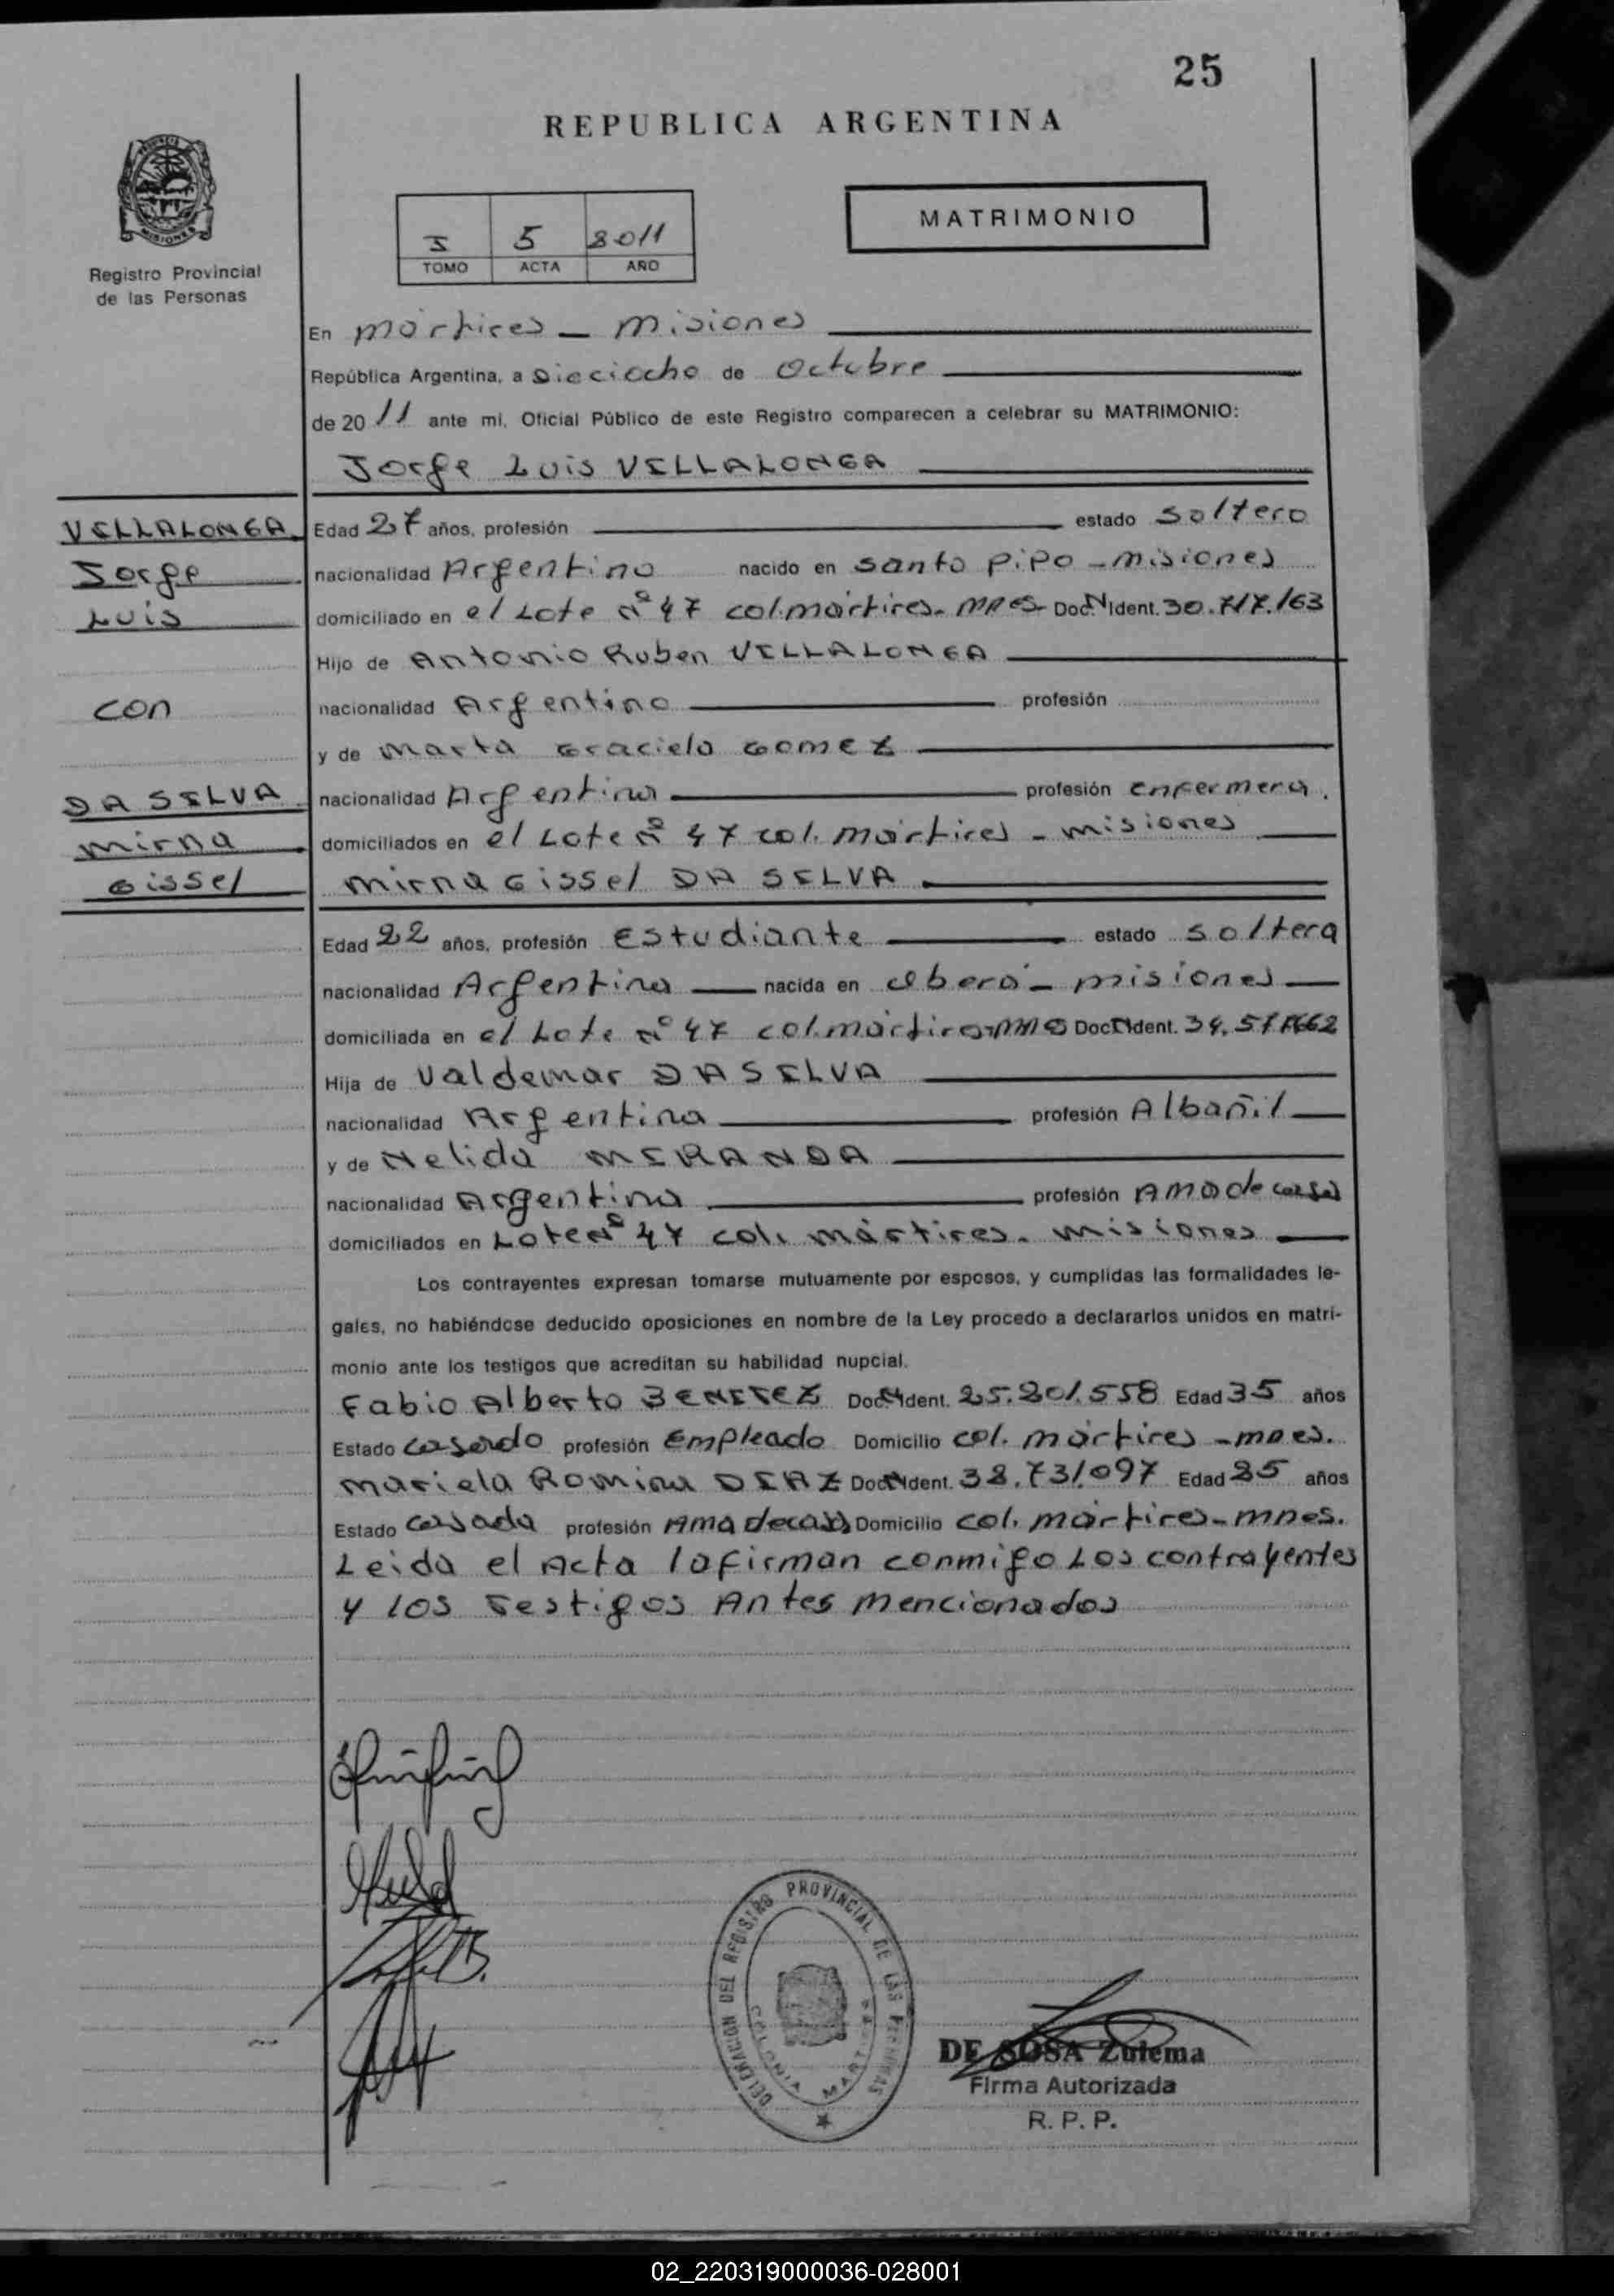 25
REPUBLICA ARGENTINA
MATRIMONIO
I 5 2011
TOMO ACTA AÑO
Registro Provincial
de las Personas
En Mártires - Misiones
República Argentina, a Dieciocho de Octubre
de 20 11 ante mi, Oficial Público de este Registro comparecen a celebrar su MATRIMONIO:
Jorge Luis VILLALONGA
VILLALONGA
Jorge
Luis
con
DA SILVA
Mirna
Gissel
Edad 27 años, profesión estado Soltero
nacionalidad Argentino nacido en Santo Pipo - Misiones
domiciliado en el Lote Nº 47 col. Mártires - Mnes. Doc. N Ident. 30.717.163
Hijo de Antonio Ruben VILLALONGA
nacionalidad Argentino profesión
y de Marta Graciela GOMEZ
nacionalidad Argentina profesión Enfermera.
domiciliados en el Lote Nº 47 col. Mártires - Misiones
Mirna Gissel DA SILVA
Edad 22 años, profesión Estudiante estado Soltera
nacionalidad Argentina nacida en Oberá - Misiones
domiciliada en el Lote Nº 47 col. Mártires Doc. N Ident.
Hija de Valdemar DA SILVA
nacionalidad Argentina profesión Albañil
y de Nelida MIRANDA
nacionalidad Argentina profesión Ama de casa
domiciliados en Lote Nº 47 col. Mártires - Misiones
Los contrayentes expresan tomarse mutuamente por esposos, y cumplidas las formalidades le-
gales, no habiéndose deducido oposiciones en nombre de la Ley procedo a declararlos unidos en matri-
monio ante los testigos que acreditan su habilidad nupcial.
Fabio Alberto BENITEZ Doc. N Ident. 25.201.558 Edad 35 años
Estado Casado profesión Empleado Domicilio col. Mártires - Mnes.
Mariela Romina DIAZ Doc. N Ident. 32.731.097 Edad 25 años
Estado Casada profesión Ama de casa Domicilio col. Mártires - Mnes.
Leida el Acta la firman conmigo Los contrayentes
y los Testigos Antes mencionados
DELEGACION DEL REGISTRO PROVINCIAL DE LAS PERSONAS
COLONIA MARTIRES
DE SOSA Zulema
Firma Autorizada
R. P. P.
02_220319000036-028001